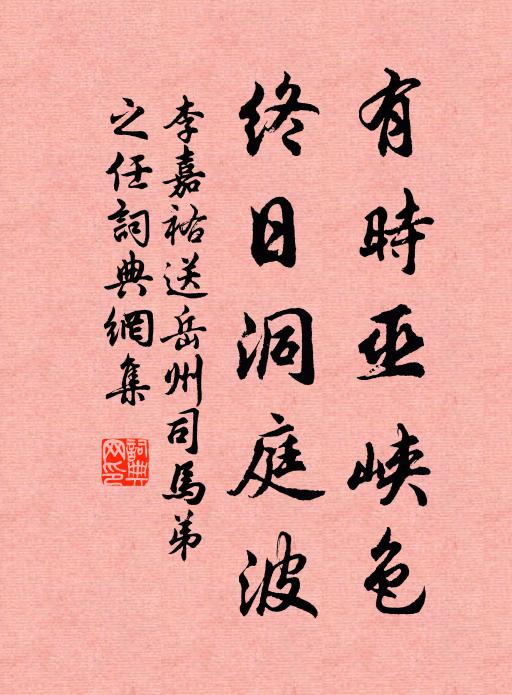 有時巫峽色
終日洞庭波
李嘉祐送岳州司馬弟
之任詞典網集
詞典網印